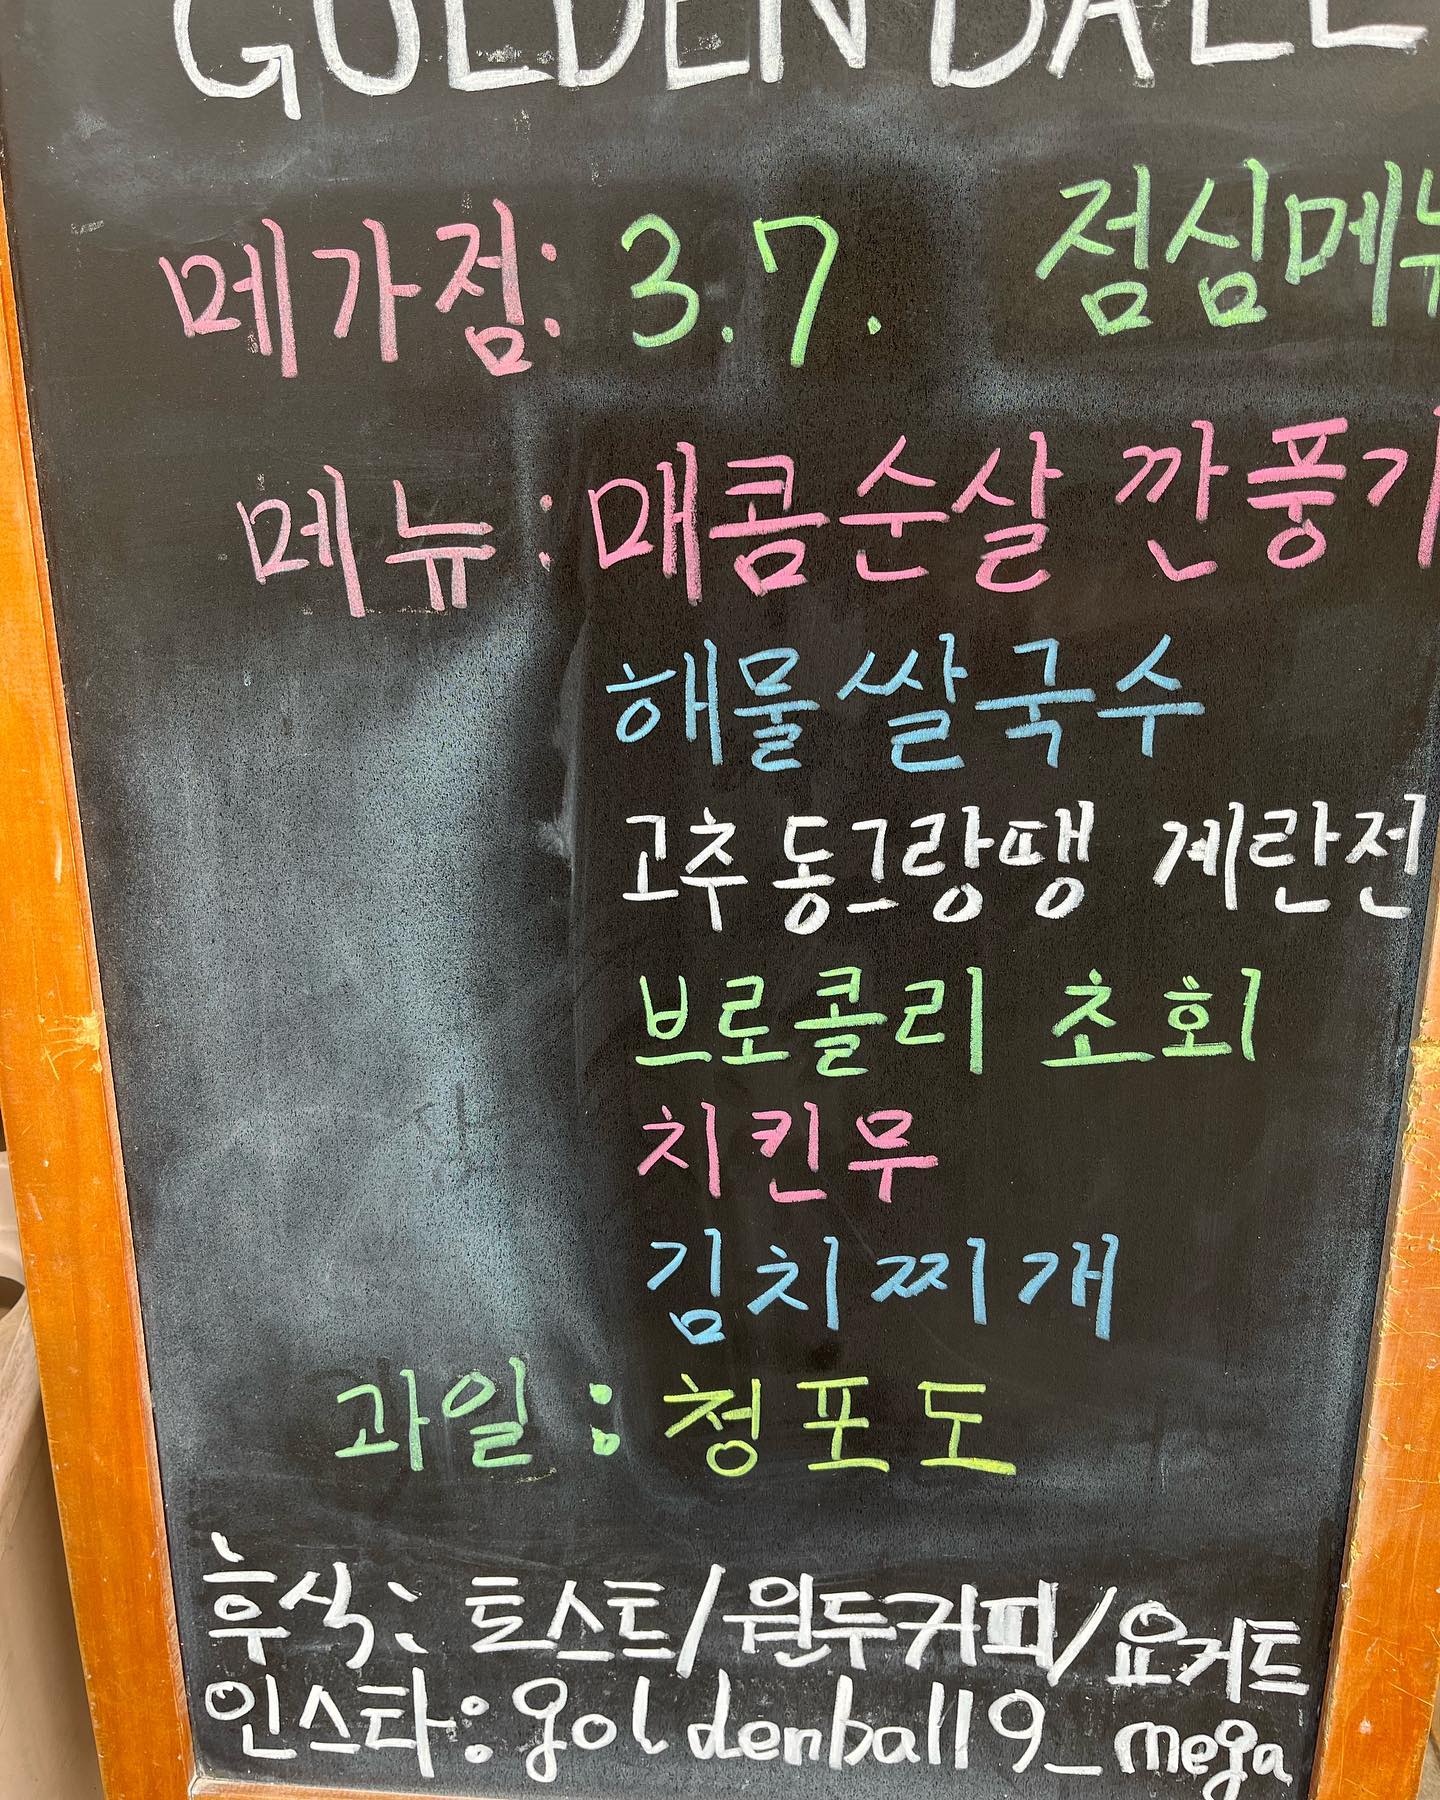 GOLDEN BALL
메가점: 3.7. 점심메뉴
메뉴: 매콤순살 깐풍기
해물쌀국수
고추동그랑땡 계란전
브로콜리 초회
치킨무
김치찌개
과일: 청포도
후식: 토스트/원두커피/요거트
인스타: goldenball19_mega